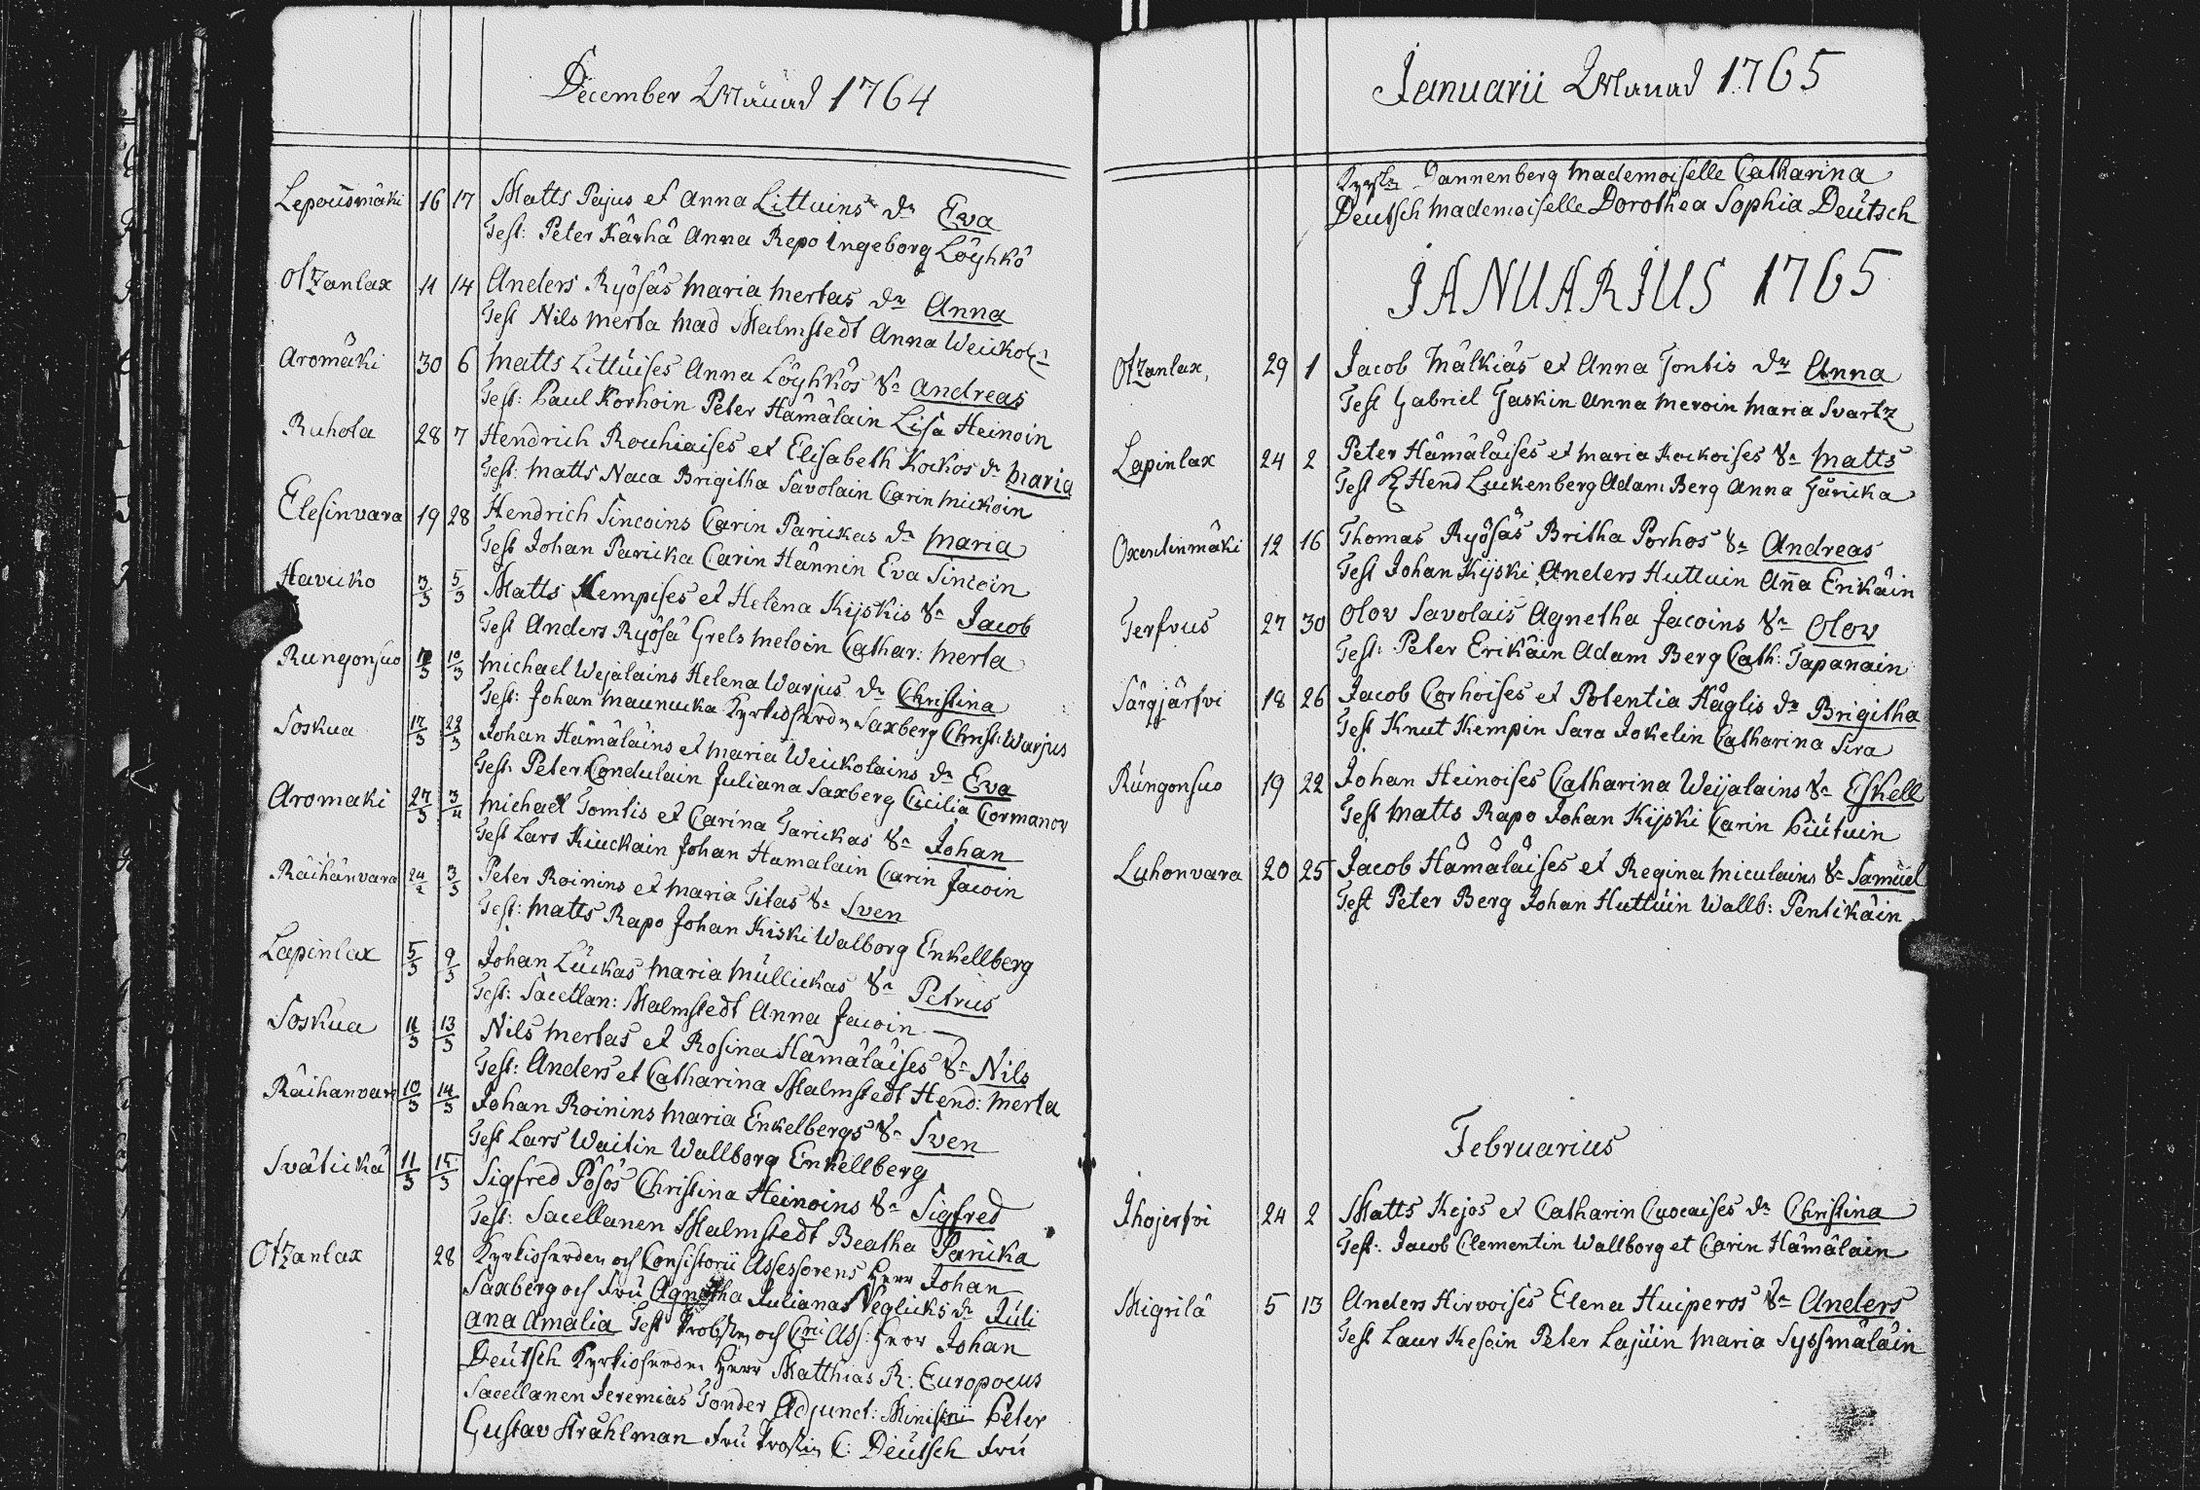 December Månad 1764
Lepousmäki 16 17 Matts Pajus et Anna Littuins dr Eva
Test: Peter Kärhä Anna Repo Ingeborg Löyhkö
Otzanlax 11 14 Anders Ryösäs Maria Mertas dr Anna
Test Nils Merta Mad Malmstedt Anna Weickol:n
Aromäki 30 6 Matts Littuises Anna Löyhkös Sn Andreas
Test: Paul Korhoin Peter Hämäläin Lisa Heinoin
Ruhola 28 7 Hendrich Rouhiaises et Elisabeth Kockos dr Maria
Test: Matts Naca Brigitha Savolain Carin Mickoin
Elesinvara 19 28 Hendrich Sincoins Carin Parickas dr Maria
Test Johan Paricka Carin Hännin Eva Sincoin
Havicko 3/3 5/3 Matts Kempises et Helena Kijskis Sn Jacob
Test Anders Ryösä Grels Meloin Cathar: Merta
Rungonsuo 10/3 Michael Wejalains Helena Warjus dr Christina
Test: Johan Maunucka Saxberg Christ: Warjus
Soskua 17/3 Johan Hämäläins et Maria Weickolains dr Eva
Test: Peter Condulain Juliana Saxberg Cicilia Cormanov
Aromaki 27/3 3/4 Michael Tomtis et Carina Tarickas Sn Johan
Test Lars Kiuckain Johan Hamalain Carin Jacoin
Räihänvara 3/3 Peter Roinins et Maria Titas Sn Sven
Test: Matts Rapo Johan Kiski Walborg Enkellberg
Lapinlax 5/3 9/3 Johan Luckas Maria Mullickas Sn Petrus
Test: Sacellan: Malmstedt Anna Jacoin
Soskua 11/3 13/3 Nils Mertas et Rosina Hämäläises Sn Nils
Test: Anders et Catharina Malmstedt Hend: Merta
Räihanvara 10/3 14/3 Johan Roinins Maria Enkelbergs Sn Sven
Test Lars Waitin Wallborg Enkellberg
Svätickä 11/3 15/3 Sigfred Pösös Christina Heinoins Sn Sigfred
Test: Sacellanen Malmstedt Beatha Paricka
Otzanlax 28 Kyrkioherden och Consistorii Assessorens Herr Johan
Saxberg och Fru Agnetha Juliana Veglicks dr Juli
ana Amalia Test Probsten och Ass: Herr Johan
Deutsch Kyrkioherden Herr Matthias R: Europoeus
Sacellanen Jeremias Tonder Adjunct: Ministrii Peter
Gustav Strahlman Fru C: Deutsch Fru
Januarii Månad 1765
Dannenberg Mademoiselle Catharina
Deutsch Mademoiselle Dorothea Sophia Deutsch
JANUARIUS 1765
Otzanlax, 29 1 Jacob Mälkiäs et Anna Tontis dr Anna
Test Gabriel Taskin Anna Meroin Maria Svartz
Lapinlax 24 2 Peter Hämäläises et Maria Kockoises Sn Matts
Test Hend Luckenberg Adam Berg Anna Täricka
Oxentinmäki 12 16 Thomas Ryösäs Britha Porhos Sn Andreas
Test Johan Kijski Anders Huttuin Anna Erikäin
Terfvus 27 30 Olov Savolais Agnetha Jacoins Sn Olov
Test: Peter Erikäin Adam Berg Cath: Tapanain
Särgjärfvi 18 26 Jacob Corhoises et Potentia Häglis dr Brigitha
Test Knut Kempin Sara Jokelin Catharina Sira
Rungonsuo 19 22 Johan Heinoises Catharina Weijalains Sn Eskell
Test Matts Rapo Johan Kijski Carin Piutuin
Luhonvara 20 25 Jacob Hämäläises et Regina Miculains Sn Samuel
Test Peter Berg Johan Huttuin Wallb: Pentikäin
Februarius
Ihojerfvi 24 2 Matts Kejos et Catharin Cuocaises dr Christina
Test: Jacob Clementin Wallborg et Carin Hämäläin
Migrilä 5 13 Anders Hirvoises Elena Huiperos Sn Anders
Test Laur Kesoin Peter Lajuin Maria Syssmäläin